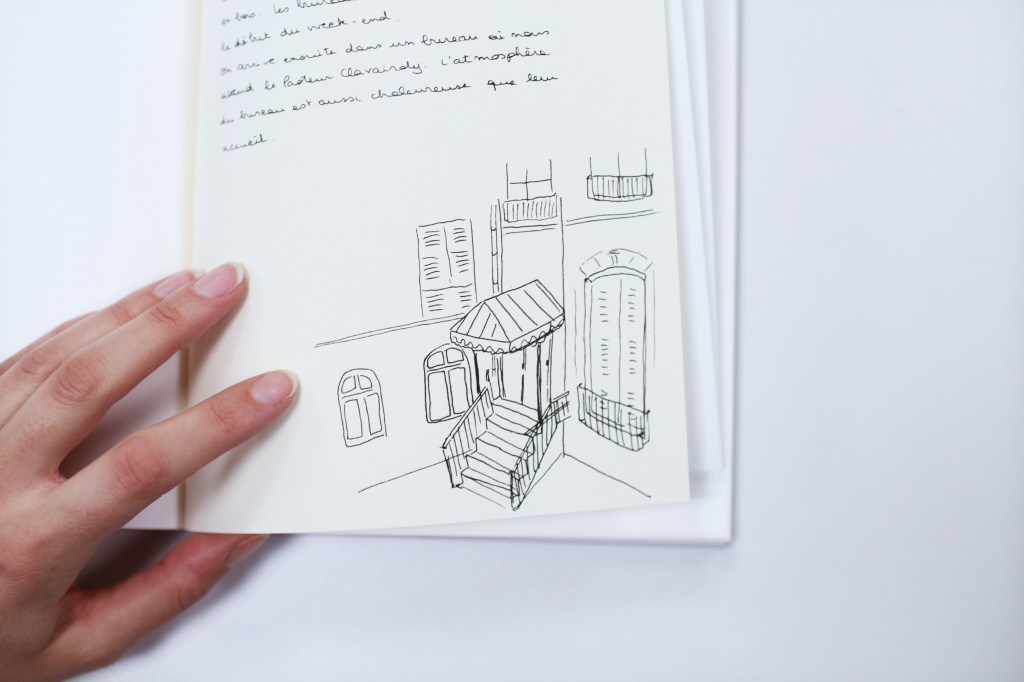 en bois. Les bureau
le début du week-end.
on arrive ensuite dans un bureau où nous
attend le Pasteur Clavairoly. L'atmosphère
du bureau est aussi chaleureuse que leur
accueil.